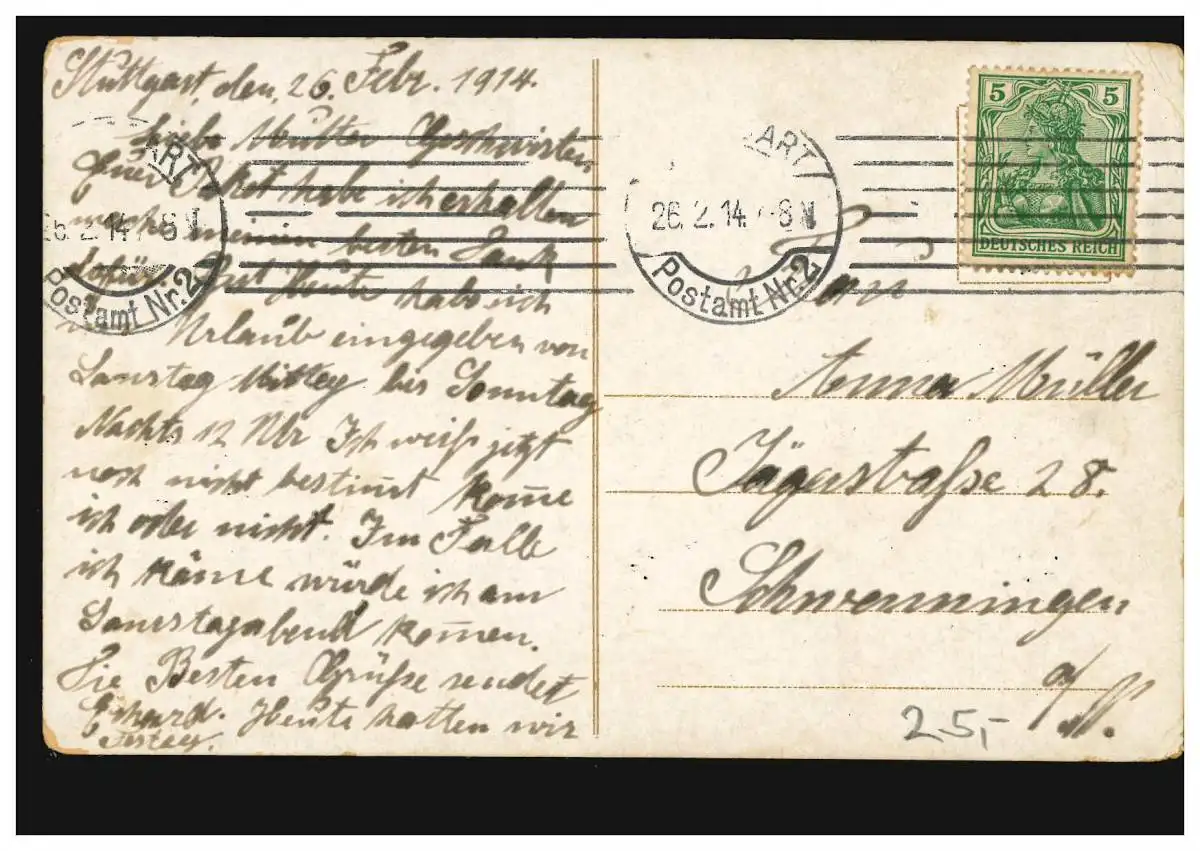 Stuttgart, den, 26. Febr. 1914.
Liebe Mutter Geschwister,
Euer Paket habe ich erhalten
meinen besten Dank
dafür. Heute habe ich
Urlaub eingegeben von
Samstag Mittag bis Sonntag
Nachts 12 Uhr Ich weiß jetzt
noch nicht bestim̄t kom̄e
ich oder nicht. Im Falle
ich käme würde ich am
Samstagabend kom̄en.
Die Besten Grüße sendet
Erhard. Heute hatten wir
Festtag.
ART
26. 2. 14. 7-8 N
Postamt Nr. 2
ART
26. 2. 14. 7-8 N
Postamt Nr. 2
5 5
DEUTSCHES REICH
Anna Müller
Jägerstraße 28.
Schwenningen
a/N.
25,-